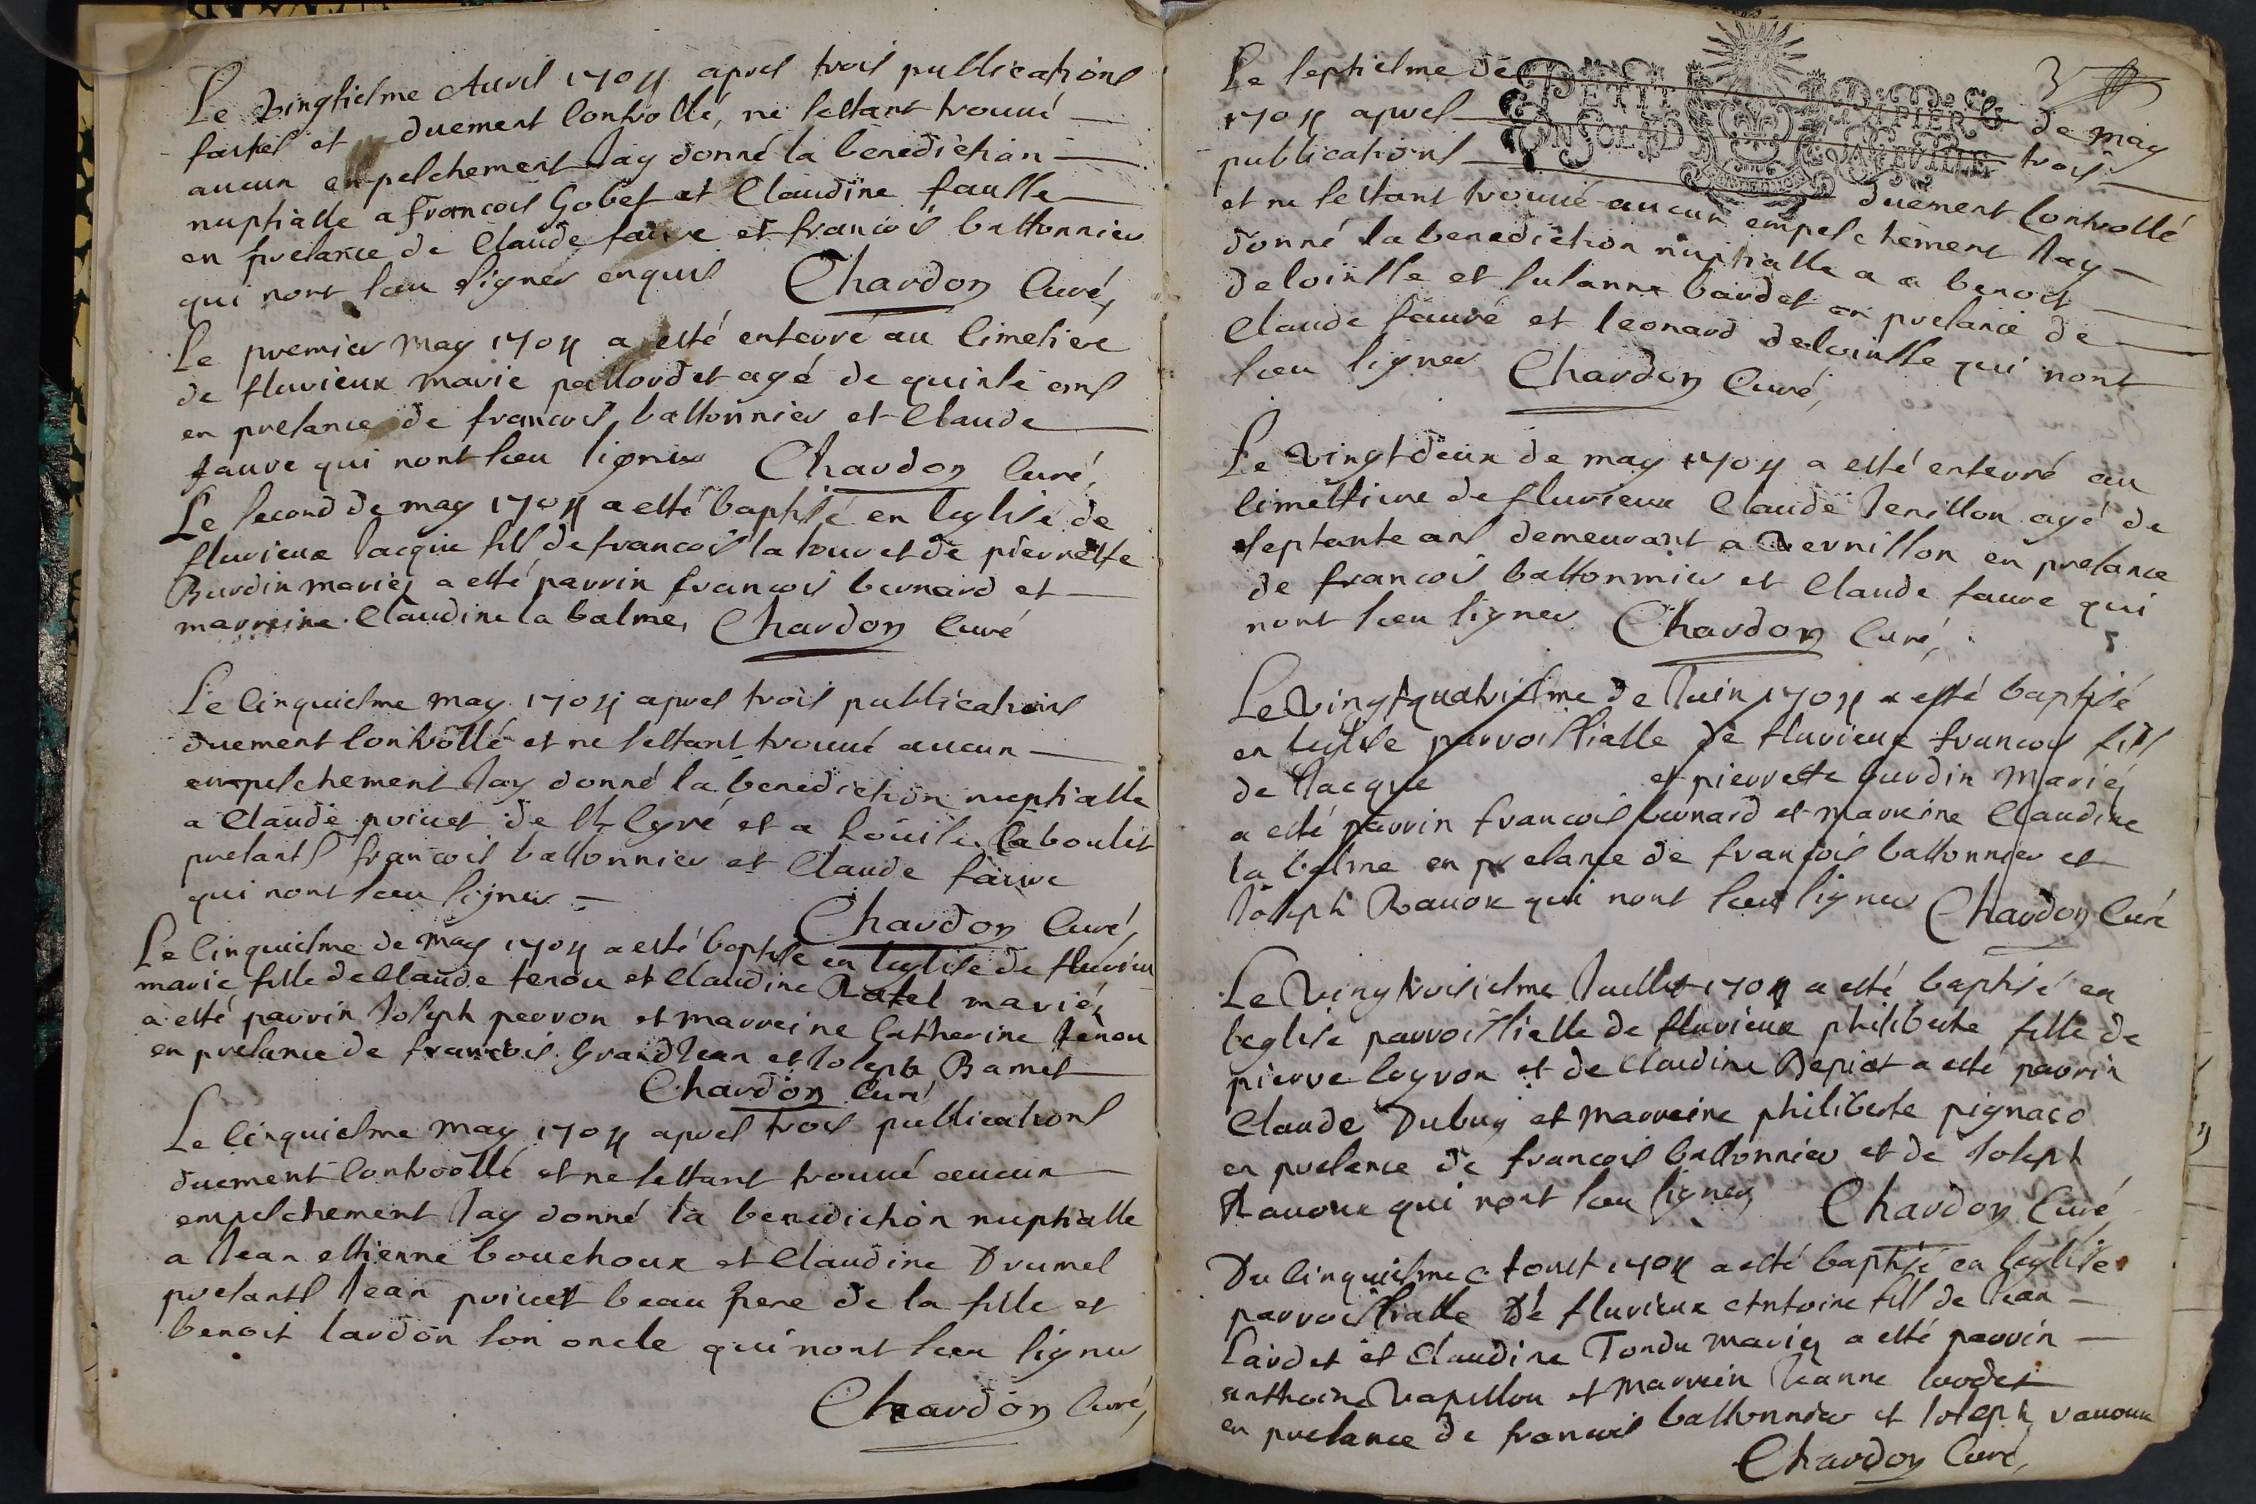 Le vingtiesme Auril 1704 apres trois publications
faites et duement controllé, ne sestant trouué
aucun enpeschement Jay donné la benediction
nuptialle a francois Gobet et Claudine faulle
en presance de Claude faure et francois bastonnier
qui nont sceu signer enquis Chardon Curé,
Le premier may 1704 a esté enterré au Cimetiere
de flurieux marie pallordet agé de quinse ans
en presance de francois bastonnier et Claude
faure qui nont sceu signer Chardon Curé,
Le second de may 1704 a esté baptisé en leglise de
flurieux Jacque fils de francois la tour et de pierrette
Burdin mariez a esté parrin francois bernard et
marreine Claudine la balme, Chardon Curé
Le Cinquiesme may 1704 apres trois publications
duement controllé et ne sestant trouué aucun
enpeschement Jay donné la benediction nuptialle
a Claude poiuet de St Cyré et a Louise Laboulet
presants francois bastonnier et Claude faure
qui nont sceu signer Chardon Curé,
Le Cinquiesme de may 1704 a esté baptisé en leglise de flurieu
marie fille de Claude tenou et Claudine Ratel mariéz
a esté parrin Joseph perron et marreine Catherine tenou
en presance de francois GrandJean et Joseph Ramet
Chardon Curé
Le Cinquiesme may 1704 apres trois publications
duement controollé et ne sestant trouué aucun
empeschement Jay donné la benediction nuptialle
a Jean estienne bouchoux et Claudine Drumel
presants Jean poiuet beau pere de la fille et
benoit lardon son oncle qui nont sceu signer
Chardon Curé,
3
PETIT PAPIER
Le septiesme de de may
1704 apres trois
publications duement controllé
et ne sestant trouué aucun empeschement Jay
donné la benediction nuptialle a a benoit
deloisse et susanne bardet en presance de
Claude fauré et leonard deloisse qui nont
sceu signer Chardon Curé,
Le vingtdeux de may 1704 a esté enterré au
Cimettiere de flurieux Claude Jenillon agé de
septante ans demeurant a Vernillon en presance
de francois bastonnier et Claude faure qui
nont sceu signer Chardon Curé,
Le Vingtquatriesme de Juin 1704 a esté baptisé
en leglise parroissialle de flurieux francois fils
de Jacque et pierrette burdin Mariéz
a esté parrin francois bernard et marreine Claudine
la balme en presance de francois bastonnier et
Joseph Rauoux qui nont sceu signer Chardon Curé
Le Vingtroisiesme Juillet 1704 a esté baptisé en
leglise parroissialle de flurieux philiberte fille de
pierre loyron et de Claudine Depiot a esté parrin
Claude Dubuy et marreine philiberte pignard
en presance de francois bastonnier et de Joseph
Rauoux qui nont sceu signer Chardon Curé
Du Cinquiesme Aoust 1704 a esté baptisé en leglise
parroissialle de flurieux Antoine fils de Jean
Lardet et Claudine Tondu mariez a esté parrin
anthoine Vapillon et marrein Jeanne lardet
en presance de francois bastonnier et Joseph rauoux
Chardon Curé,